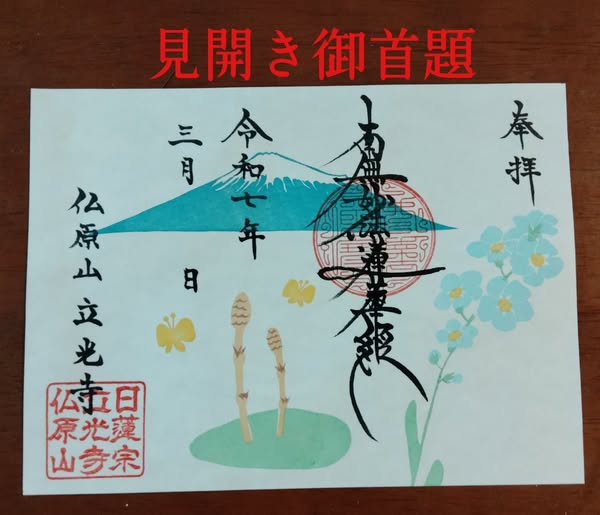 見開き御首題
奉拝
南無妙法蓮華経
令和七年
三月 日
仏原山 立光寺
日蓮宗
立光寺
仏原山